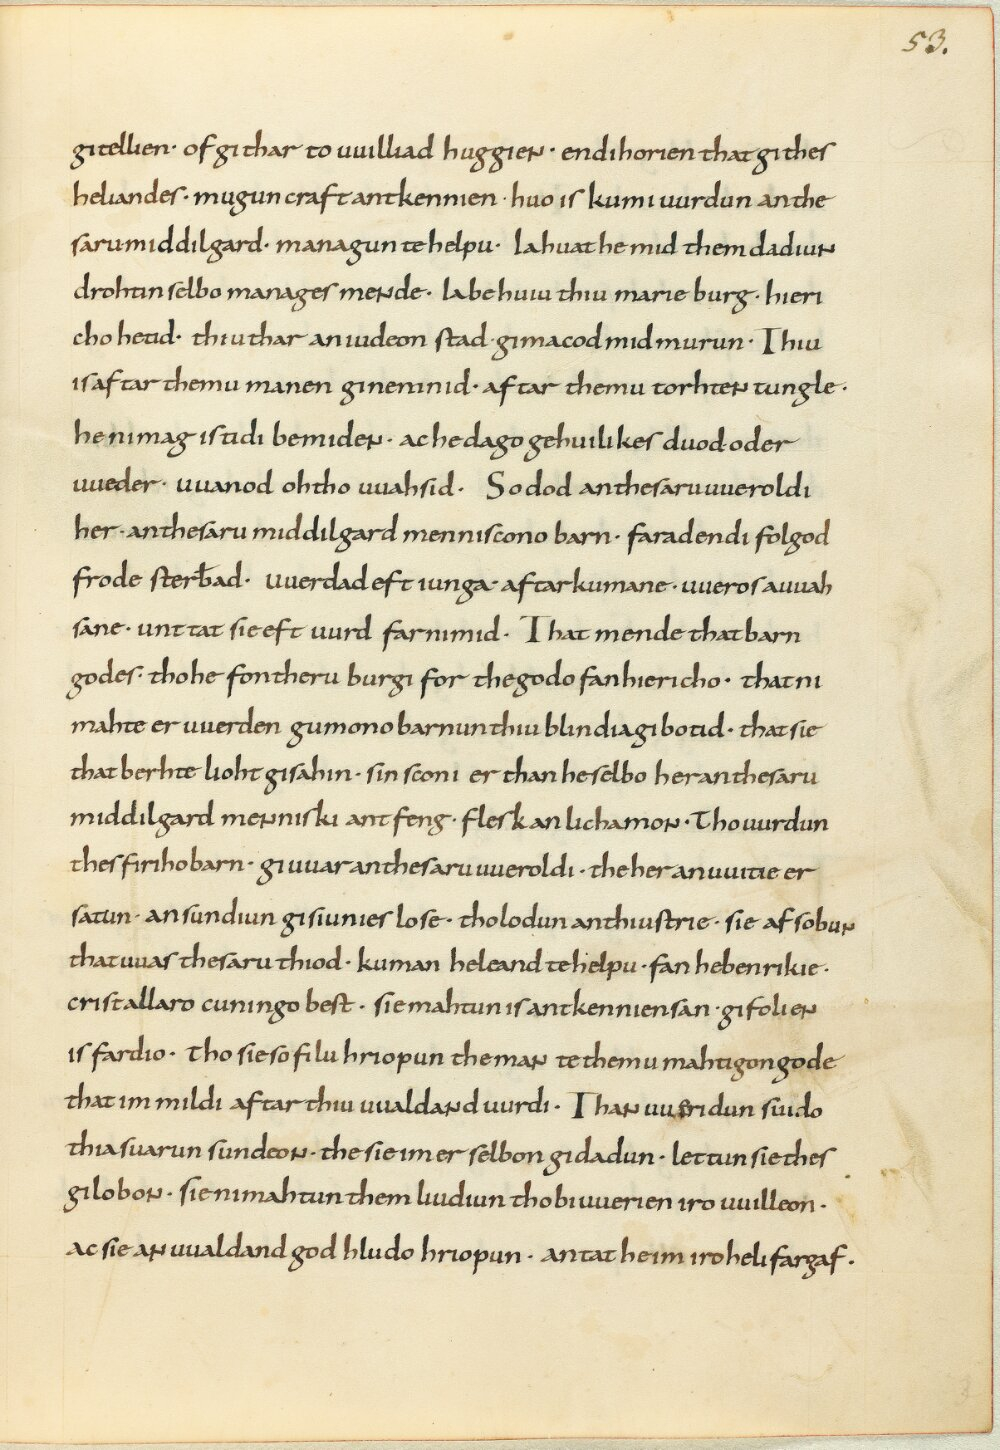 53.
gitellien· of gi thar to uuilliad huggien· endi horien that gi thes
heliandes· mugun craft antkennien· huo is kumi uurdun an the
saru middilgard· managun te helpu· Ia huat he mid them dadiun
drohtin selbo manages mende· Ia be huiu thiu marie burg· hieri
cho hetid· thiu thar an iudeon stad· gimacod mid murun· Thiu
is aftar themu manen gineninid· aftar themu torhten tungle·
he ni mag is tidi bemiden· ac he dago gehuilikes duod oder
uueder· uuanod ohtho uuahsid· So dod an thesaru uueroldi
her· an thesaru middilgard menniscono barn· farad endi folgod
frode sterƀad· uuerdad eft iunga· aftar kumane· uueros auuah
sane· unt tat sie eft uurd farnimid· That mende that barn
godes· tho he fon theru burgi for the godo fan hiericho· that ni
mahte er uuerden gumono barnun thiu blindia gibotid· that sie
that berhte lioht gisahin· sin sconi er than he selbo her an thesaru
middilgard menniski antfeng· flesk an lichamon· Tho uurdun
thes firiho barn· giuuar an thesaru uueroldi· the her an uuitie er
satun· an sundiun gisiunies lose· tholodun an thiustrie· sie afsobun
that uuas thesaru thiod· kuman heleand te helpu· fan hebenrikie·
crist allaro cuningo best· sie mahtun is antkennien san· gifolien
is fardio· Tho sie so filu hriopun the man te themu mahtigon gode
that im mildi aftar thiu uualdand uurdi· Than uueridun suido
thia suarun sundeon· the sie im er selbon gidadun· lettun sie thes
gilobon· sie ni mahtun them liudiun tho biuuerien iro uuilleon·
ac sie an uualdand god hludo hriopun· antat he im iro heli fargaf·